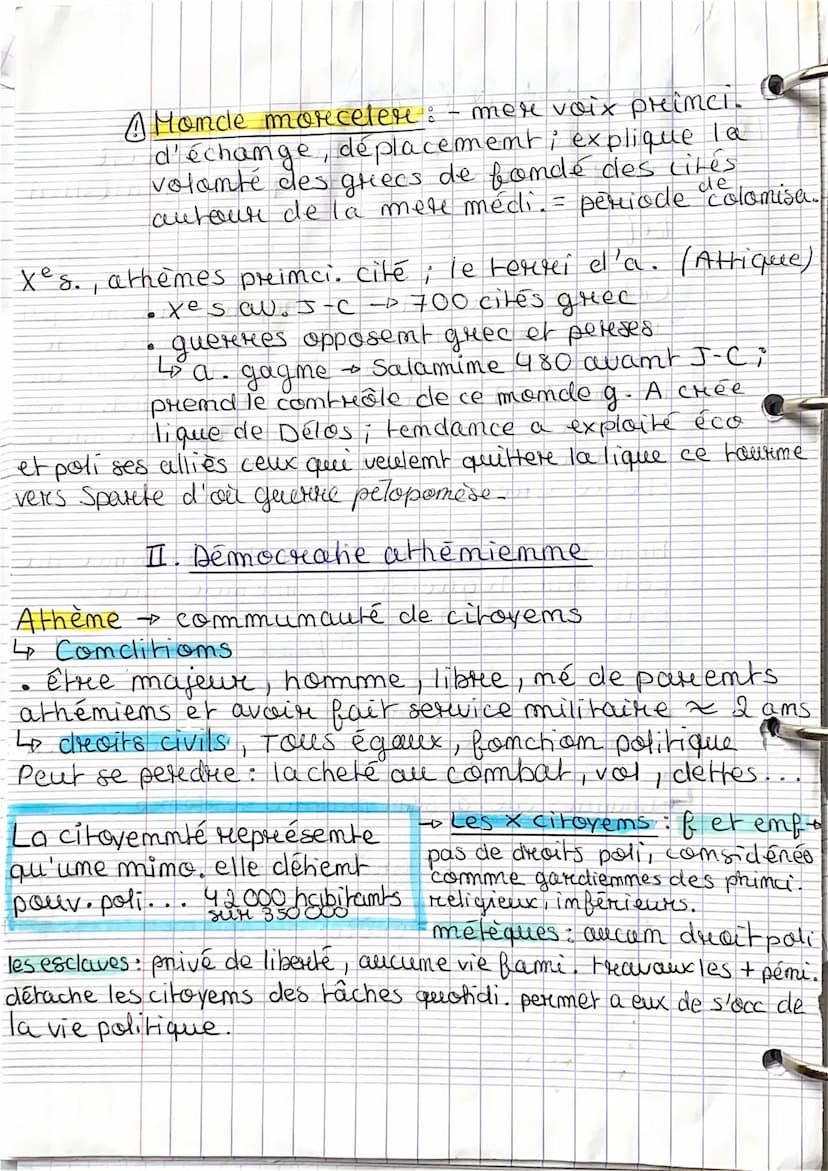 ⚠ Monde morceler : - mer voix princi.
d'échange, déplacement ; explique la
volonté des grecs de fondé des cités
autour de la mer médi. = période de colonisa.
Xe s., athènes princi. cité ; le terri d'a. (Attique)
• Xe s av. J-C → 700 cités grec
• guerres opposent grec et perses
↳ a. gagne → Salamine 480 avant J-C ;
prend le contrôle de ce monde g. A crée
ligue de Délos ; tendance a exploité éco
et poli ses alliés ceux qui veulent quitter la ligue ce tourne
vers Sparte d'où guerre péloponèse.
II. Démocratie athénienne
Athène → communauté de citoyens
↳ Conditions
• être majeur, homme, libre, né de parents
athéniens et avoir fait service militaire ≈ 2 ans
↳ droits civils, Tous égaux, fonction politique
Peut se perdre : lacheté au combat, vol, dettes...
La citoyennté représente
qu'une mino. elle détient
pouv. poli... 42 000 habitants
sur 350 000
→ Les X citoyens : f et enf →
pas de droits poli, considéréo
comme gardiennes des princi.
religieux, inférieurs.
métèques : aucun droit poli
les esclaves : privé de liberté, aucune vie fami. travaux les + péni.
détache les citoyens des tâches quotidi. permet a eux de s'occ de
la vie politique.